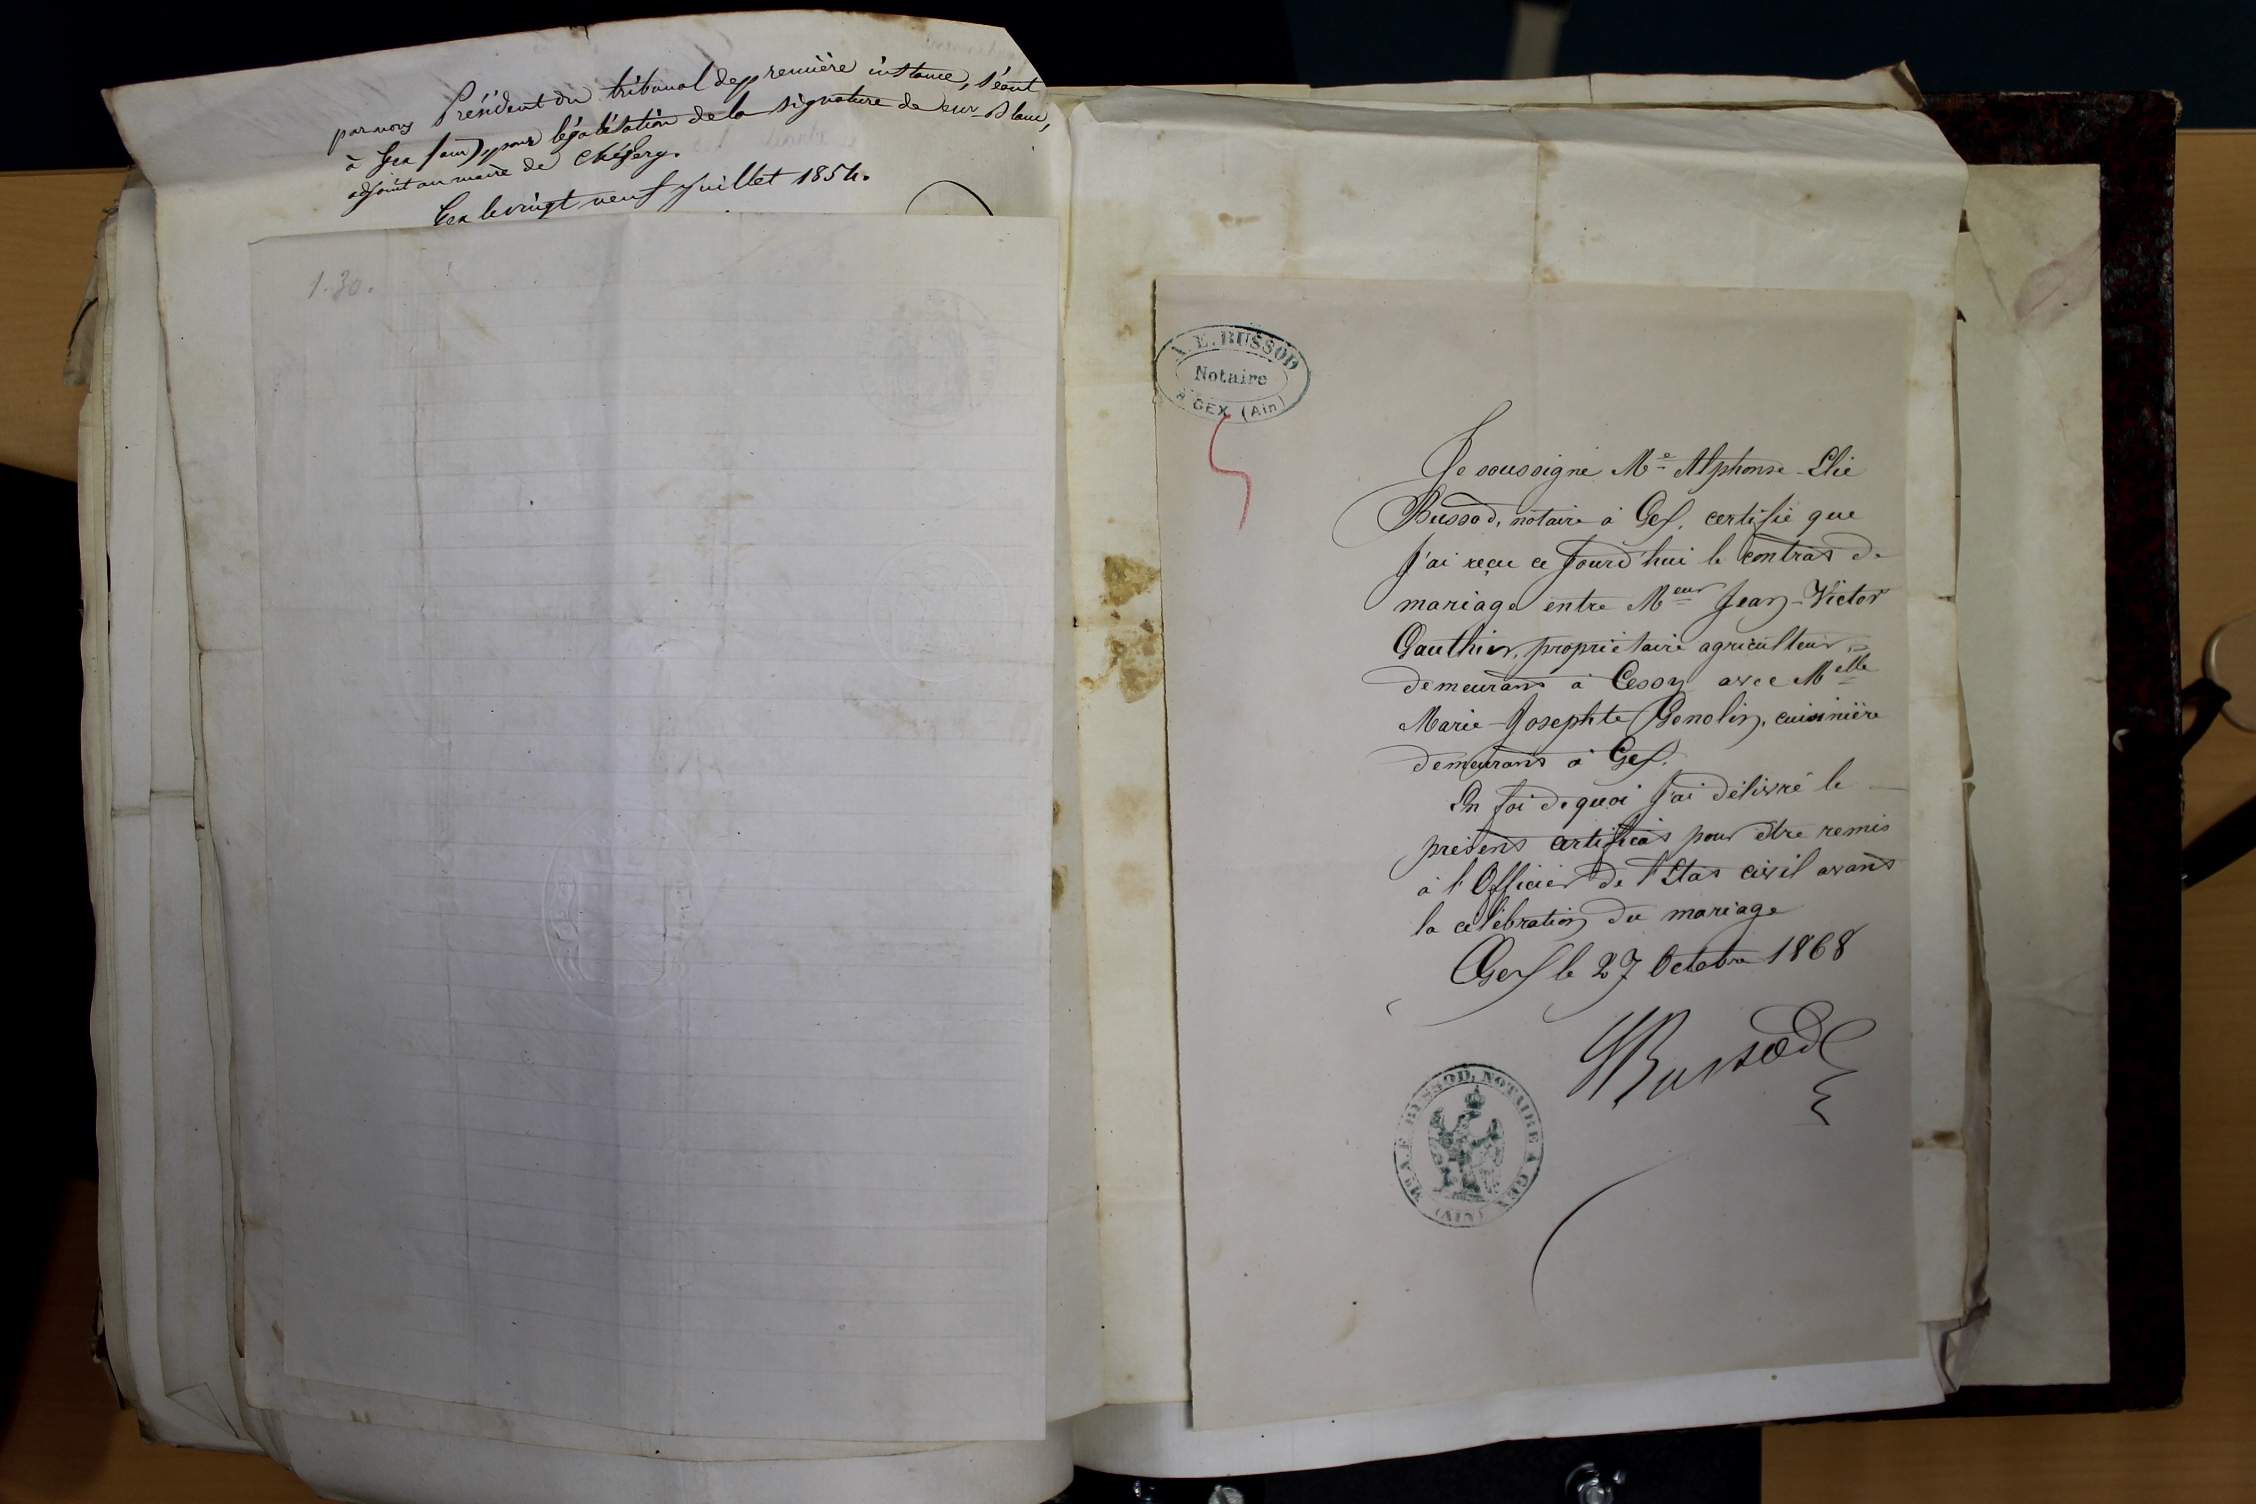 par nous Président du tribunal de première instance, séant
à Gex (ain), pour légalisation de la signature de sieur Blanc,
adjoint au maire de Chézery.
Gex le vingt neuf juillet 1854.
1.30.
A. E. BUSSOD
Notaire
A GEX (Ain)
Je soussigné Me Alphonse-Elie
Bussod, notaire à Gex, certifie que
j'ai reçu ce jourd'hui le contrat de
mariage entre Meur Jean-Victor
Gauthier, propriétaire agriculteur,
demeurant à Cessy avec Melle
Marie-Josephte Genolin, cuisinière
demeurant à Gex.
En foi de quoi j'ai délivré le
présent certificat pour être remis
à l'Officier de l'Etat civil avant
la célébration du mariage
Gex le 27 Octobre 1868
Bussod
Me A. E. BUSSOD, NOTAIRE A GEX
(AIN)